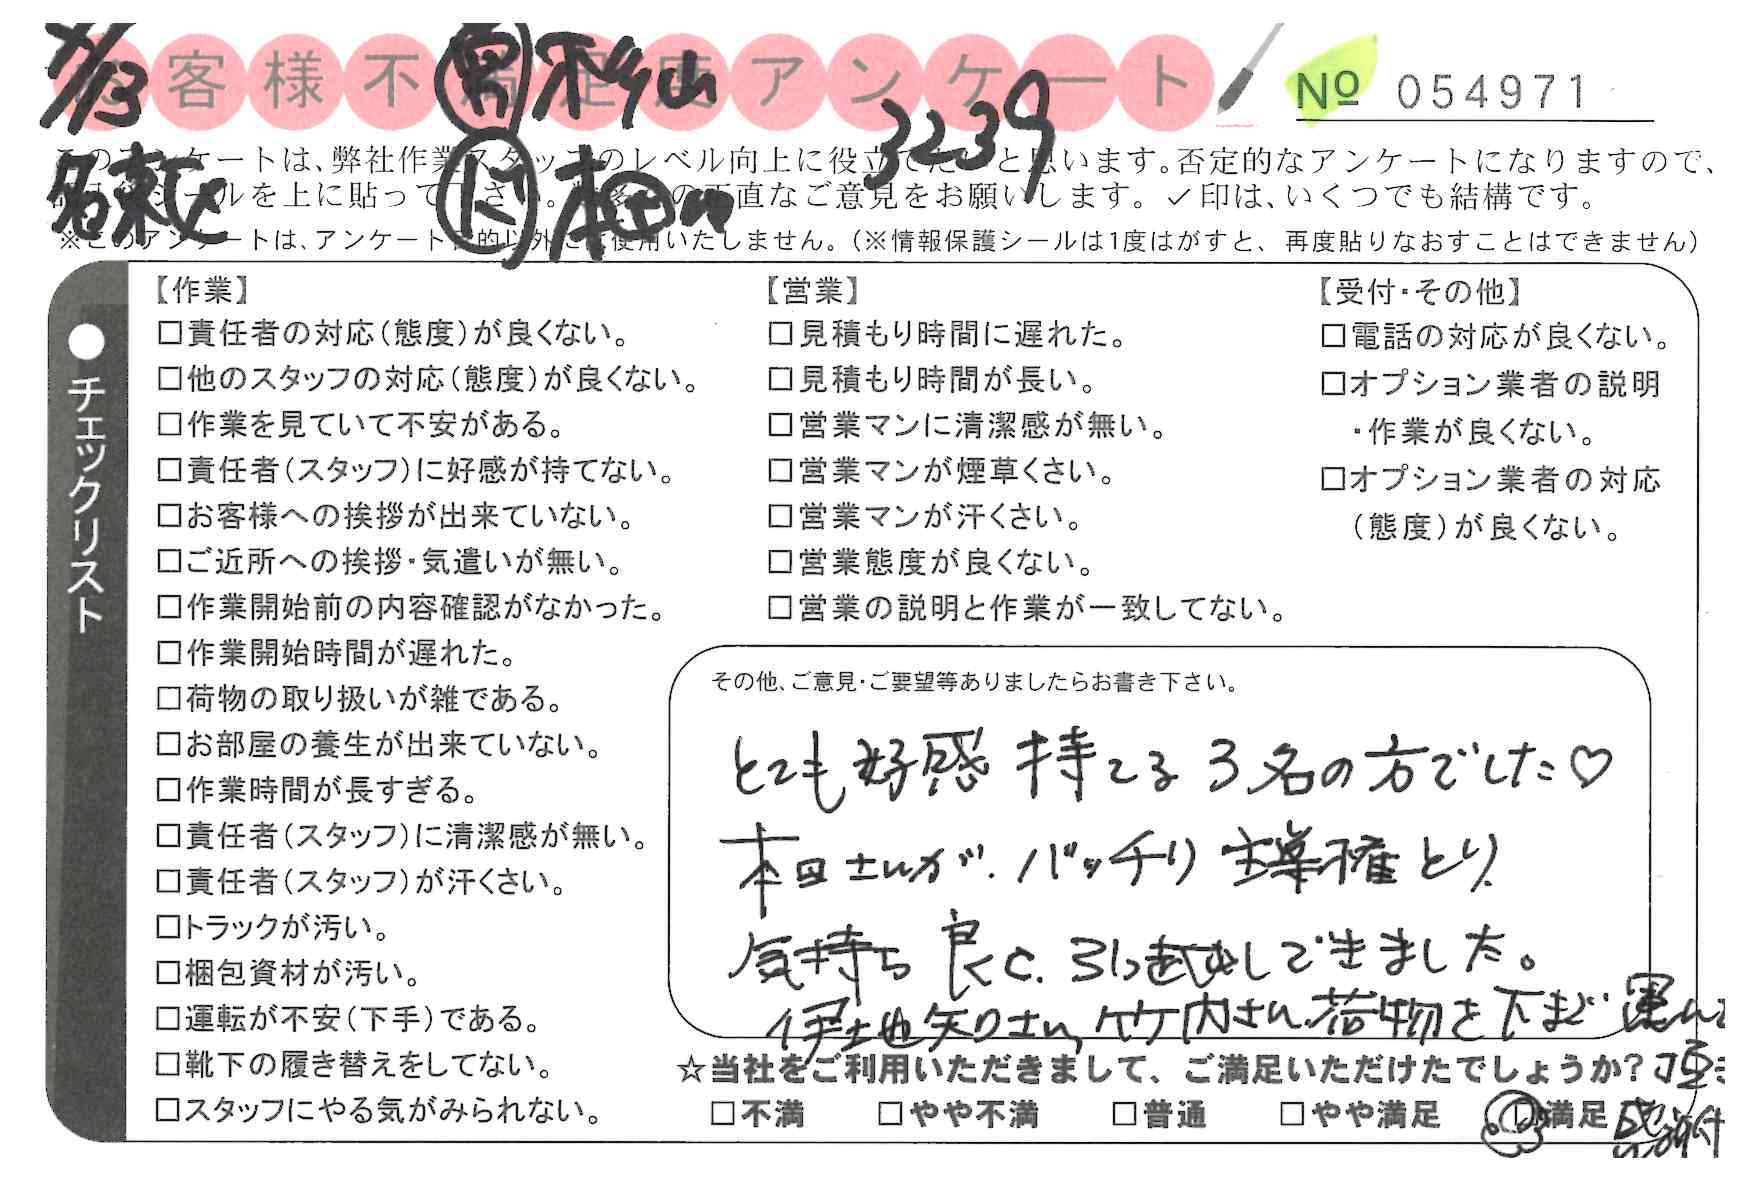 お客様不満足度アンケート
№ 054971
/13
男 杉山
3239
名東区
ド 本田
このアンケートは、弊社作業スタッフのレベル向上に役立てたいと思います。否定的なアンケートになりますので、
シールを上に貼って下さい。の正直なご意見をお願いします。✓印は、いくつでも結構です。
※このアンケートは、アンケート目的以外にご使用いたしません。(※情報保護シールは1度はがすと、再度貼りなおすことはできません)
●チェックリスト
【作業】
□責任者の対応(態度)が良くない。
□他のスタッフの対応(態度)が良くない。
□作業を見ていて不安がある。
□責任者(スタッフ)に好感が持てない。
□お客様への挨拶が出来ていない。
□ご近所への挨拶・気遣いが無い。
□作業開始前の内容確認がなかった。
□作業開始時間が遅れた。
□荷物の取り扱いが雑である。
□お部屋の養生が出来ていない。
□作業時間が長すぎる。
□責任者(スタッフ)に清潔感が無い。
□責任者(スタッフ)が汗くさい。
□トラックが汚い。
□梱包資材が汚い。
□運転が不安(下手)である。
□靴下の履き替えをしてない。
□スタッフにやる気がみられない。
【営業】
□見積もり時間に遅れた。
□見積もり時間が長い。
□営業マンに清潔感が無い。
□営業マンが煙草くさい。
□営業マンが汗くさい。
□営業態度が良くない。
□営業の説明と作業が一致してない。
【受付・その他】
□電話の対応が良くない。
□オプション業者の説明
・作業が良くない。
□オプション業者の対応
(態度)が良くない。
その他、ご意見・ご要望等ありましたらお書き下さい。
とても好感持てる3名の方でした♡
本田さんが、バッチリ主導権とり、
気持ち良く、引っ越しできました。
伊地知さん、竹内さん荷物を下まで運んで
頂き
感謝
☆当社をご利用いただきまして、ご満足いただけたでしょうか?
□不満 □やや不満 □普通 □やや満足 □満足